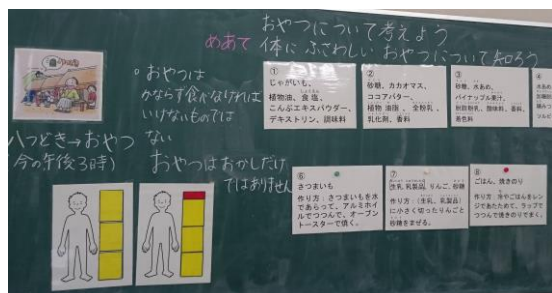 おやつについて考えよう
めあて 体にふさわしい おやつについて知ろう
。おやつは
かならず食べなければ
いけないものでは
ない
おやつはおかしだけ
ではありません
八つどき→おやつ
(今の午後3時)
①
じゃがいも、
植物油、食塩、
こんぶエキスパウダー、
デキストリン、調味料
②
砂糖、カカオマス、
ココアバター、
植物油脂、全粉乳、
乳化剤、香料
③
砂糖、水あめ、
パイナップル果汁、
香料、
着色料
④
水あめ
⑥
さつまいも
作り方:さつまいもを水
であらって、アルミホイ
ルでつつんで、オーブン
トースターで焼く。
⑦
生乳、乳製品、りんご、砂糖
作り方:(生乳、乳製品)
に小さく切ったりんごと
砂糖をまぜる。
⑧
ごはん、焼きのり
作り方:冷やごはんをレン
ジであたためて、ラップで
つつんで焼きのりでまく。